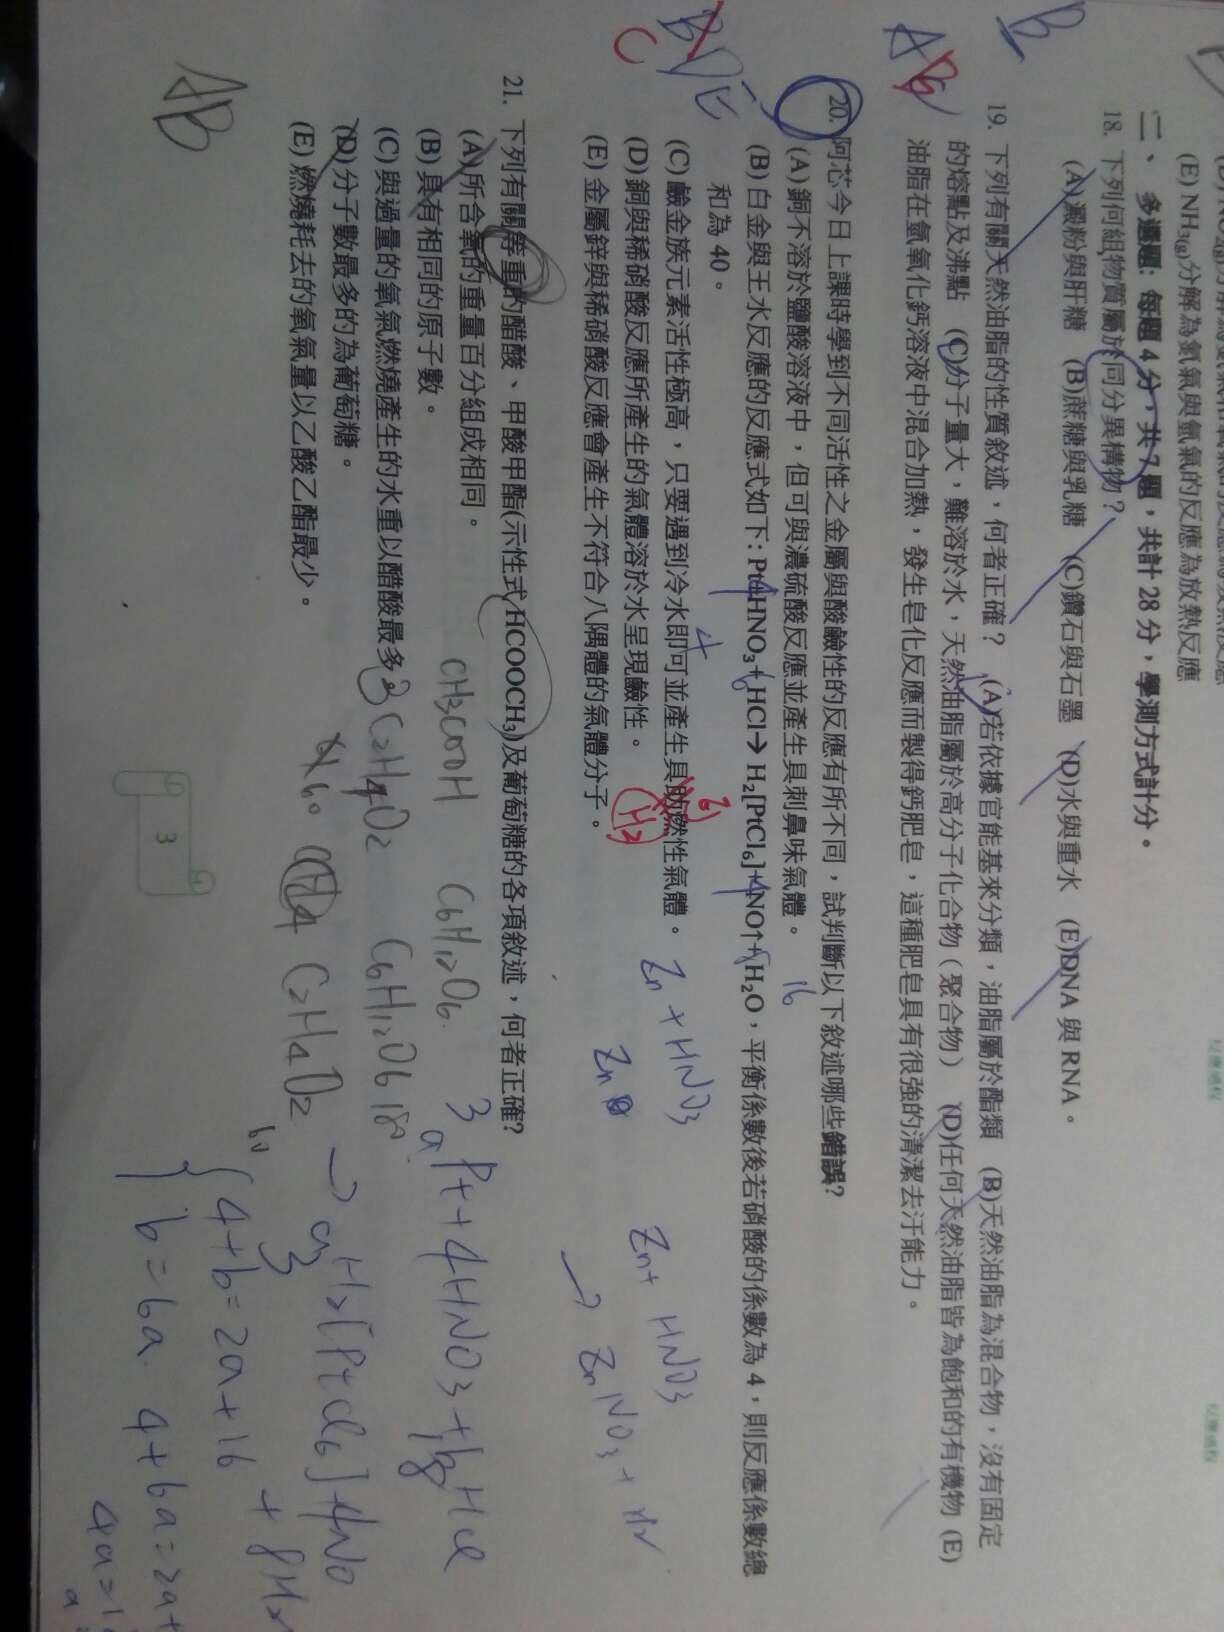 (E) NH₃(g)分解為氮氣與氫氣的反應為放熱反應
二、多選題: 每題 4 分,共 7 題,共計 28 分,學測方式計分。
B
18. 下列何組物質屬於同分異構物?
(A)澱粉與肝糖 (B)蔗糖與乳糖 (C)鑽石與石墨 (D)水與重水 (E)DNA 與 RNA。
AB
19. 下列有關天然油脂的性質敘述,何者正確? (A)若依據官能基來分類,油脂屬於酯類 (B)天然油脂為混合物,沒有固定
的熔點及沸點 (C)分子量大,難溶於水,天然油脂屬於高分子化合物(聚合物) (D)任何天然油脂皆為飽和的有機物 (E)
油脂在氫氧化鈣溶液中混合加熱,發生皂化反應而製得鈣肥皂,這種肥皂具有很強的清潔去汙能力。
20. 阿芯今日上課時學到不同活性之金屬與酸鹼性的反應有所不同,試判斷以下敘述哪些錯誤?
(A) 銅不溶於鹽酸溶液中,但可與濃硫酸反應並產生具刺鼻味氣體。
16
(B) 白金與王水反應的反應式如下: Pt+HNO₃+HCl→ H₂[PtCl₆]+NO↑+H₂O,平衡係數後若硝酸的係數為 4,則反應係數總
和為 40。
4
BDE
C
(C) 鹼金族元素活性極高,只要遇到冷水即可並產生具助燃性氣體。
Zn + HNO₃
Zn + HNO₃
(D) 銅與稀硝酸反應所產生的氣體溶於水呈現鹼性。
H₂
(E) 金屬鋅與稀硝酸反應會產生不符合八隅體的氣體分子。
→ ZnNO₃ +
21. 下列有關等重的醋酸、甲酸甲酯(示性式 HCOOCH₃)及葡萄糖的各項敘述,何者正確?
(A)所含氧的重量百分組成相同。
CH₃COOH C₆H₁₂O₆
3
aPt + 4HNO₃ + bHCl
(B) 具有相同的原子數。
(C) 與過量的氧氣燃燒產生的水重以醋酸最多。
C₂H₄O₂ C₆H₁₂O₆ 180
→ aH₂[PtCl₆] + 4NO
3
(D)分子數最多的為葡萄糖。
60 C₂H₄O₂
60
+ 8H₂
(E) 燃燒耗去的氧氣量以乙酸乙酯最少。
4+b=2a+16
b=6a 4+6a=2a+
AB
3